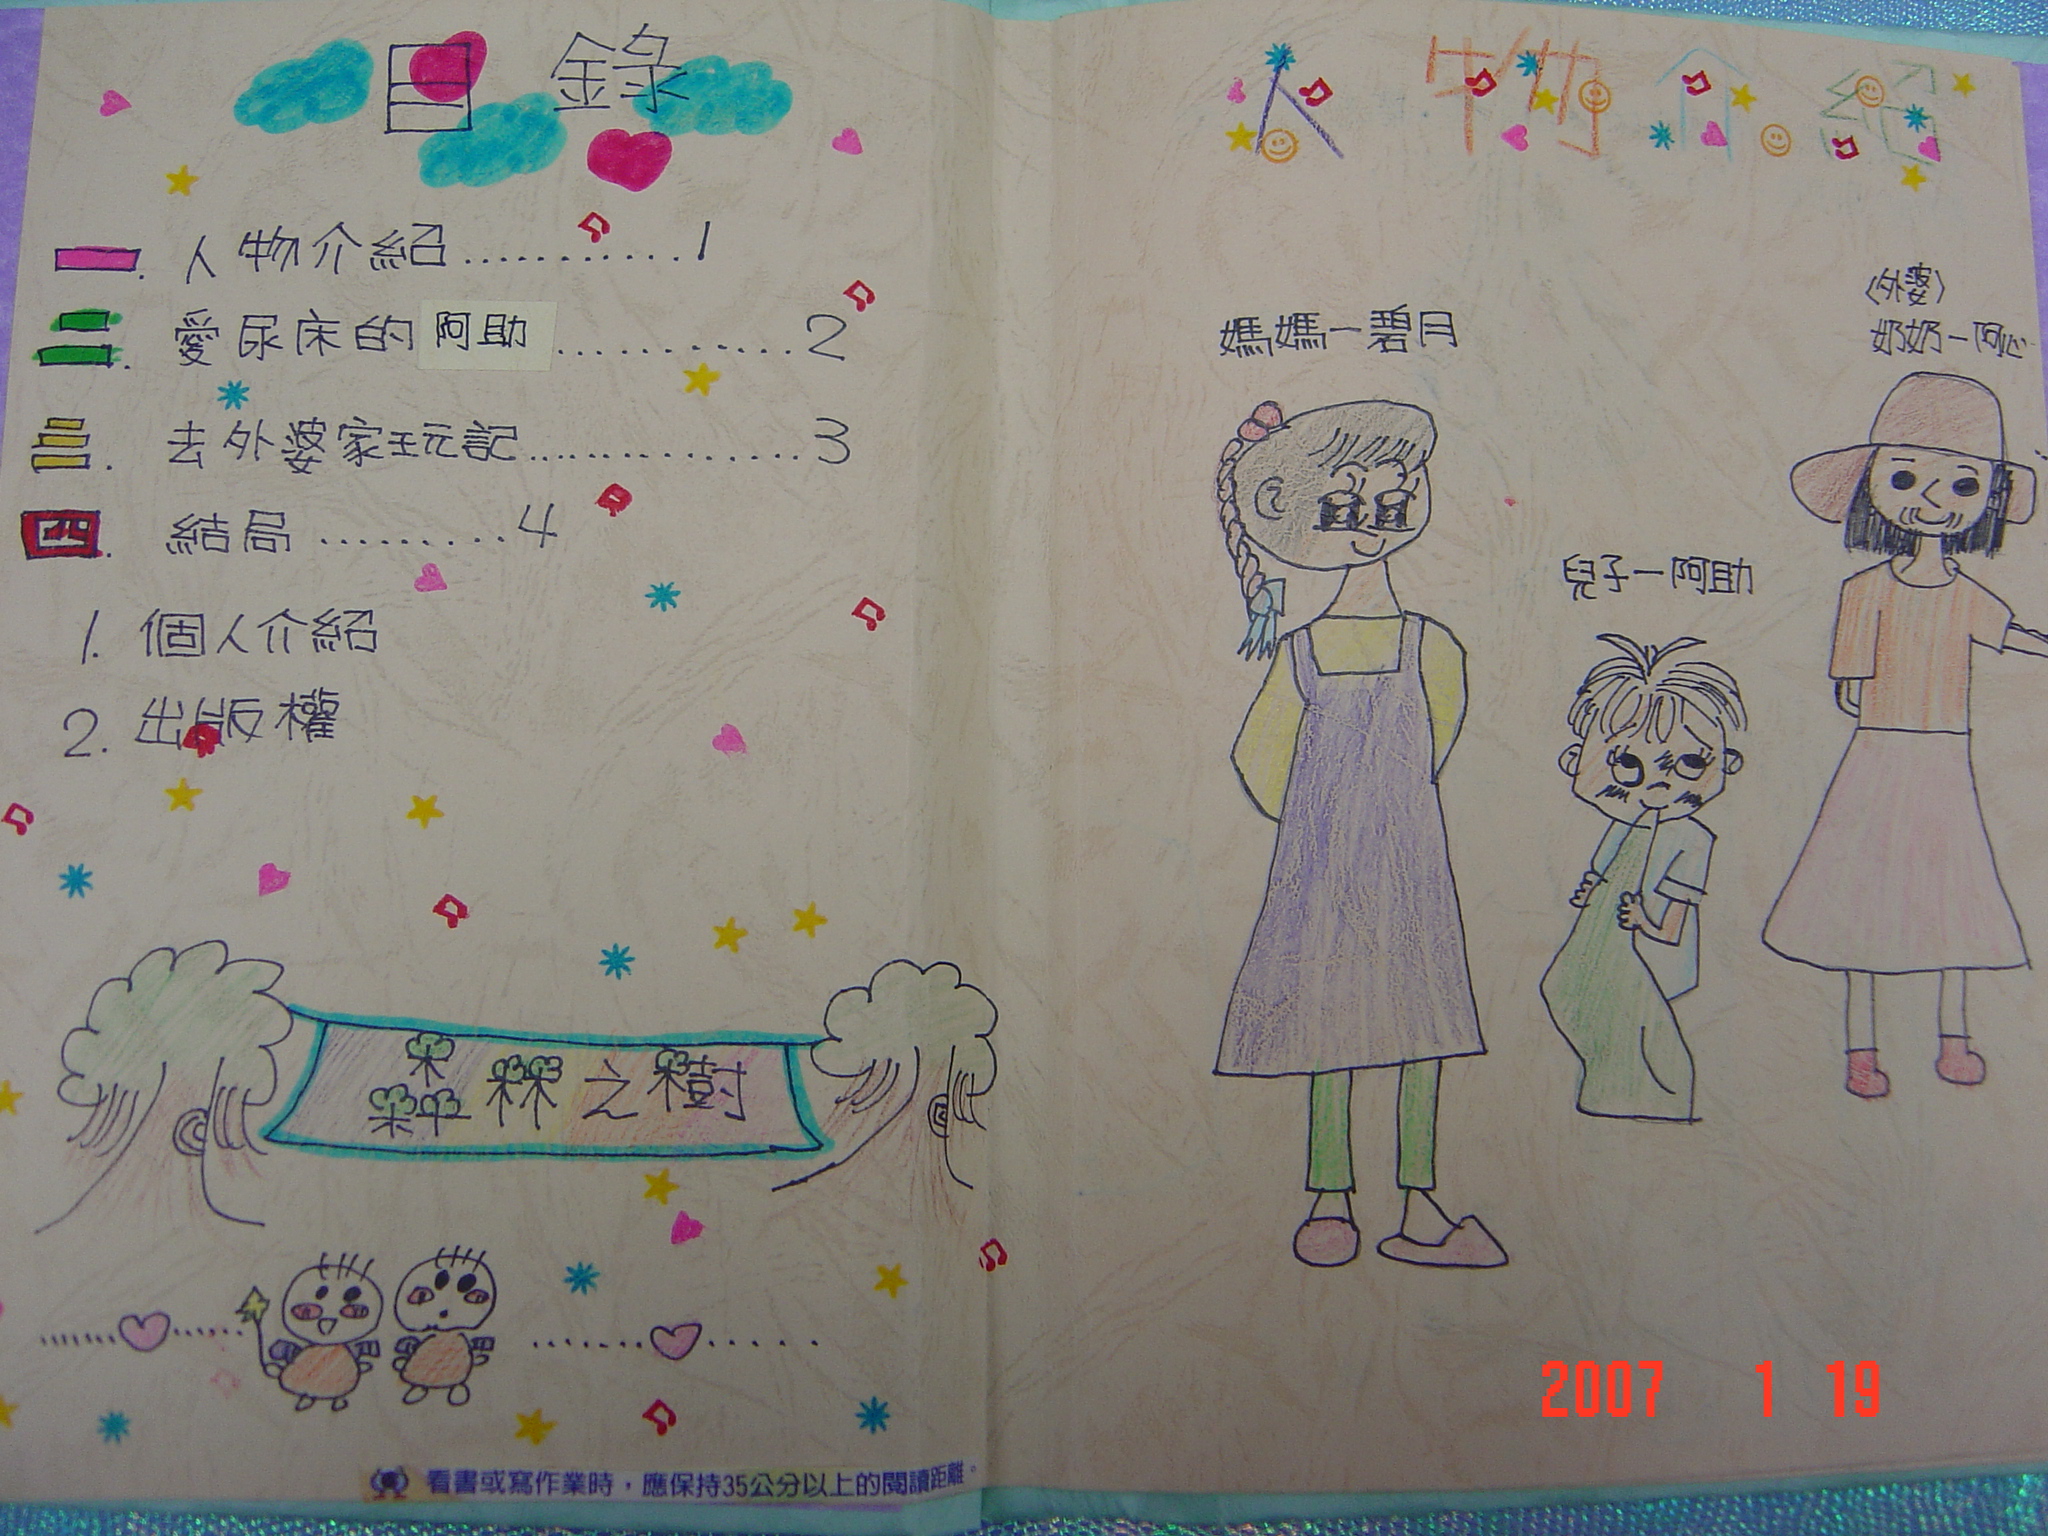 目錄
一. 人物介紹..............1
二. 愛尿床的阿助..............2
三. 去外婆家玩記..............3
四. 結局..........4
1. 個人介紹
2. 出版權
森林之樹
看書或寫作業時，應保持35公分以上的閱讀距離。
人物介紹
媽媽－碧月
兒子－阿助
〈外婆〉
奶奶－阿心
2007 1 19